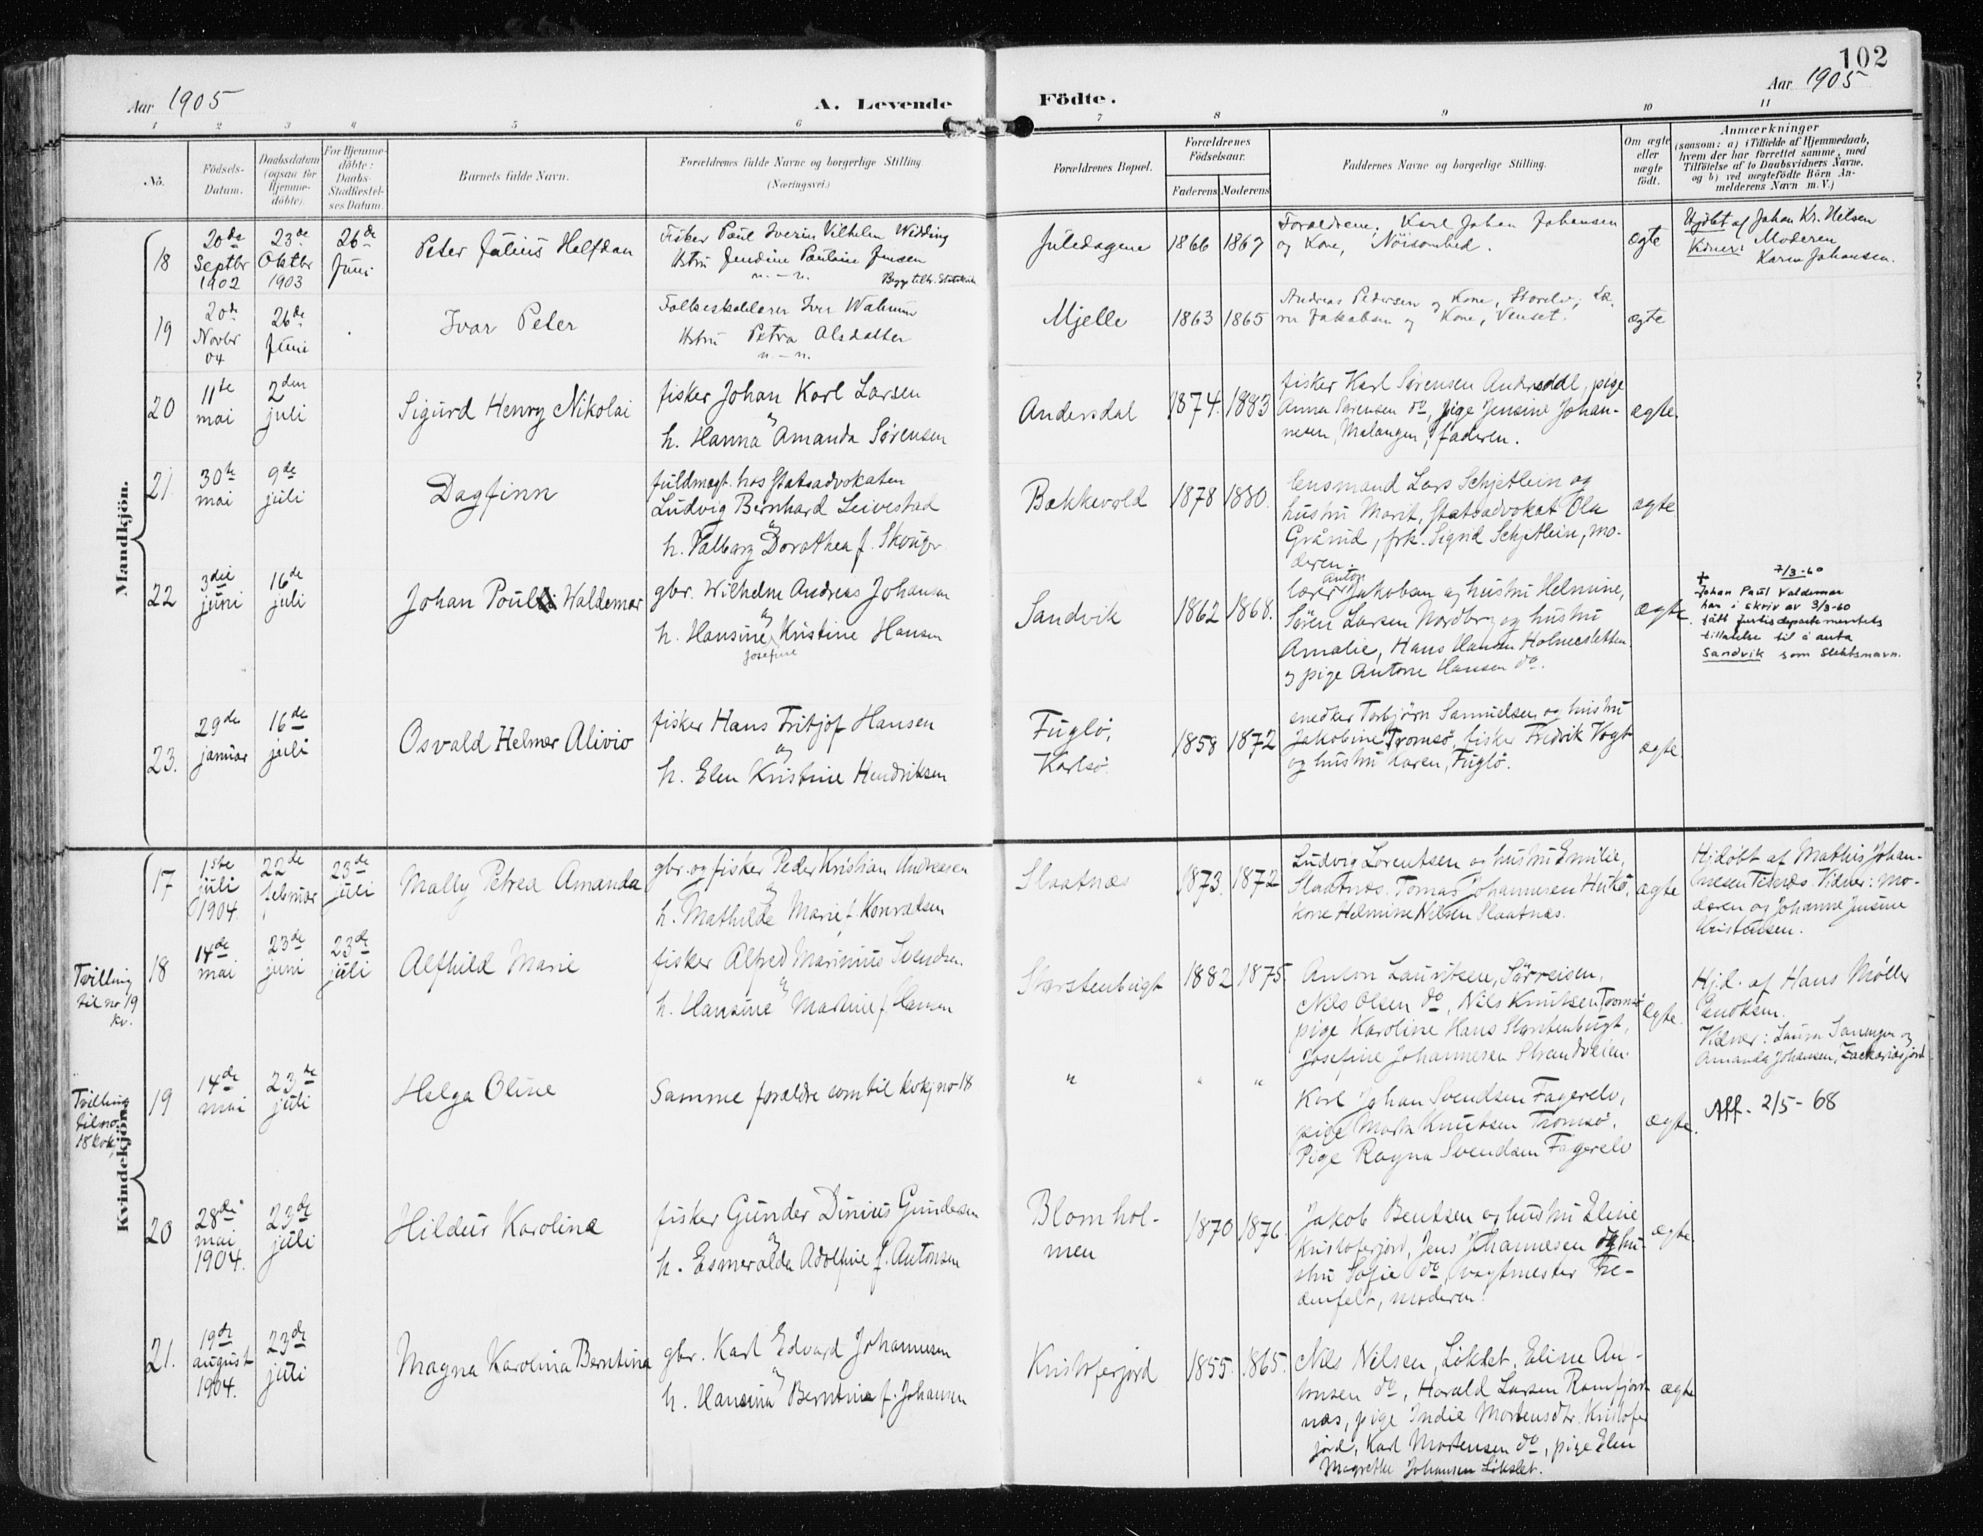 102
Aar 1905
A. Levende
Födte.
Aar 1905
1 2 3 4 5 6 7 8 9 10 11
No.
Födsels-
Datum.
Daabsdatum
(ogsaa for
Hjemme-
döbte).
For Hjemme-
döbte:
Daabs-
Stadfæstel-
ses Datum.
Barnets fulde Navn.
Forældrenes fulde Navne og borgerlige Stilling
(Næringsvei.)
Forældrenes Bopæl.
Forældrenes
Födselsaar.
Faderens Moderens
Faddernes Navne og borgerlige Stilling.
Om ægte
eller
uægte
födt.
Anmærkninger
(saasom: a) i Tilfælde af Hjemmedaab,
hvem der har forrettet samme, med
Tilföielse af to Daabsvidners Navne.
og b) ved uægtefödte Börn An-
melderens Navn m. V.)
Mandkjön.
18
20de
Septbr
1902
23de
Oktbr
1903
26de
Juni
Peter Julius Halfdan
Fisker Paul Iverin Vilhelm Widding
Hstru Jendine Pauline Jensen
n. - n.
Juledagene
1866 1867
Forældrene, Karl Johan Johansen
og Kone, Nöisomhed.
ægte
Hjdöbt af Johan Kr. Nilsen
Vidner: Moderen
Karen Johansen.
19
20de
Novbr
04
26de
Juni
Ivar Peter
Hstru Petra Olsdatter
n. - n.
Mjelle
1863 1865
Andreas Pedersen og Kone, Storelv,
Jakobsen og Kone,
ægte
20
11te
mai
2den
juli
Sigurd Henry Nikolai
fisker Johan Karl Larsen
og
h. Hanna Amanda Sørensen
Andersdal
1874. 1883
fisker Karl Sørensen Andersdal, pige
Anna Sørensen do, pige Jensine Johan-
nesen, Malangen, faderen.
ægte.
21.
30te
mai
9de
juli
Dagfinn
fuldmægt. hos Statsadvokaten
Ludvig Bernhard Leivestad
og
h. Valborg Dorothea f.
Bakkevold
1878 1880.
lensmand Lars Schjetlein og
hustru Marit, Statsadvokat Ola
frk. Signd Schjetlein, mo-
deren.
ægte
22
3die
juni
16de
juli
Johan Poul Waldemar
gbr. Wilhelm Andreas Johansen
og
h. Hansine Kristine Hansen
Josefine
Sandvik
1862 1868.
lærer Anton Jakobsen og hustru Helmine,
Søren Larsen Nordberg og hustru
Amalie, Hans Hansen Holmesletten
og pige Antone Hansen do.
ægte.
7/3-60
+
Johan Paul Valdemar
har i skriv av 3/3-60
fått justisdepartementets
tillatelse til å anta
Sandvik som slektsnavn.
23.
29de
januar
16de
juli
Osvald Helmer Alivio
fisker Hans Fritjof Hansen
og
h. Elen Kristine Hendriksen
Fuglö,
Karlsö.
1858 1872
snedker Torbjørn Samuelsen og hustru
Jakobine Tromsø, fisker Fredrik Vogt
og hustru Karen, Fuglö.
ægte.
Kvindekjön.
17
1ste
juli
1904.
22de
februar
23de
juli
Mally Petrea Amanda
gbr. og fisker Peder Kristian Andreasen
og
h. Mathilde Marie f. Konradsen
Slaatnæs
1873. 1872
Ludvig Lorentsen og hustru Emilie,
Slaatnæs. Tomas Johannesen
kone Helmine Nilsen Slaatnæs.
ægte
Hjdöbt af Mathis Johan-
nesen Vidner: mo-
deren og Johanne Jensine
Kristensen.
Tvilling
til no 19
kv.
18
14de
mai
23de
juni
23de
juli
Alfhild Marie
fisker Alfred Marinius Svendsen.
og
h. Hansine Martine f. Hansen
Skarstenbugt
1882 1875.
Anton Lauritsen, Sörreisen,
Nils Olsen do, Nils Knutsen Tromsø
pige Karoline Hans Skarstenbugt,
Josefine Johannesen Strandveien.
ægte.
Hjd. af Hans Møller
Enoksen.
Vidner: Laura og
Amanda Johansen, Zackariasjord
Tvilling
til no
18 kvk.
19
14de
mai
23de
juli
Helga Oline
Samme forældre som til kvkj no 18
" " "
Karl Johan Svendsen Fagerelv,
pige Marta Knutsen Tromsø.
Pige Ragna Svendsen Fagerelv
ægte.
Aff. 2/5-68
20
28de
mai
1904.
23de
juli
Hildur Karoline
fisker Gunder Dinius Gundersen
og
h. Esmeralda Adolfine f. Antonsen
Blomhol-
men
1870 1876.
Jakob Bentsen og hustru Eline
Kristoferjord, Jens Johannesen og hu-
stru Sofie do, vagtmester Fre-
denfelt, moderen.
ægte.
21.
19de
august
1904.
23de
juli
Magna Karolina Berntina
gbr. Karl Edvard Johannesen
og
h. Hansina Berntine f. Johansen
Kristoferjord
1855. 1865.
Nils Nilsen, Löksltet, Eline An-
tonsen do, Harald Larsen Ramfjord-
næs, pige Indie Mortensdtr. Kristofer
jord, Karl Mortensen do, pige Elen
Magrethe Johansen Lökslet.
ægte